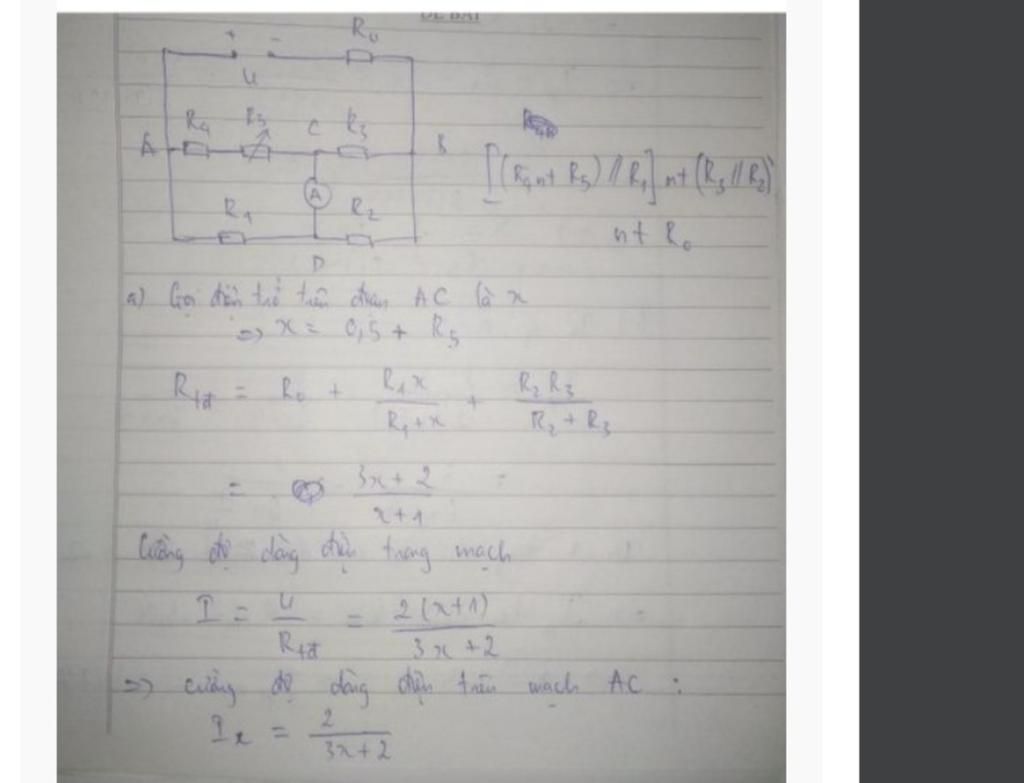 ĐỀ BÀI
+ - R₀
U
R₄ R₅ C R₃
A B
A
R₁ R₂
D
[(R₄ nt R₅) // R₁] nt (R₃ // R₂)
nt R₀
a) Gọi điện trở trên đoạn AC là x
=> x = 0,5 + R₅
R_tđ = R₀ + R₁x / (R₁ + x) + R₂R₃ / (R₂ + R₃)
= (3x + 2) / (x + 1)
Cường độ dòng điện trong mạch
I = U / R_tđ = 2(x+1) / (3x + 2)
=> cường độ dòng điện trên mạch AC :
Iₓ = 2 / (3x + 2)